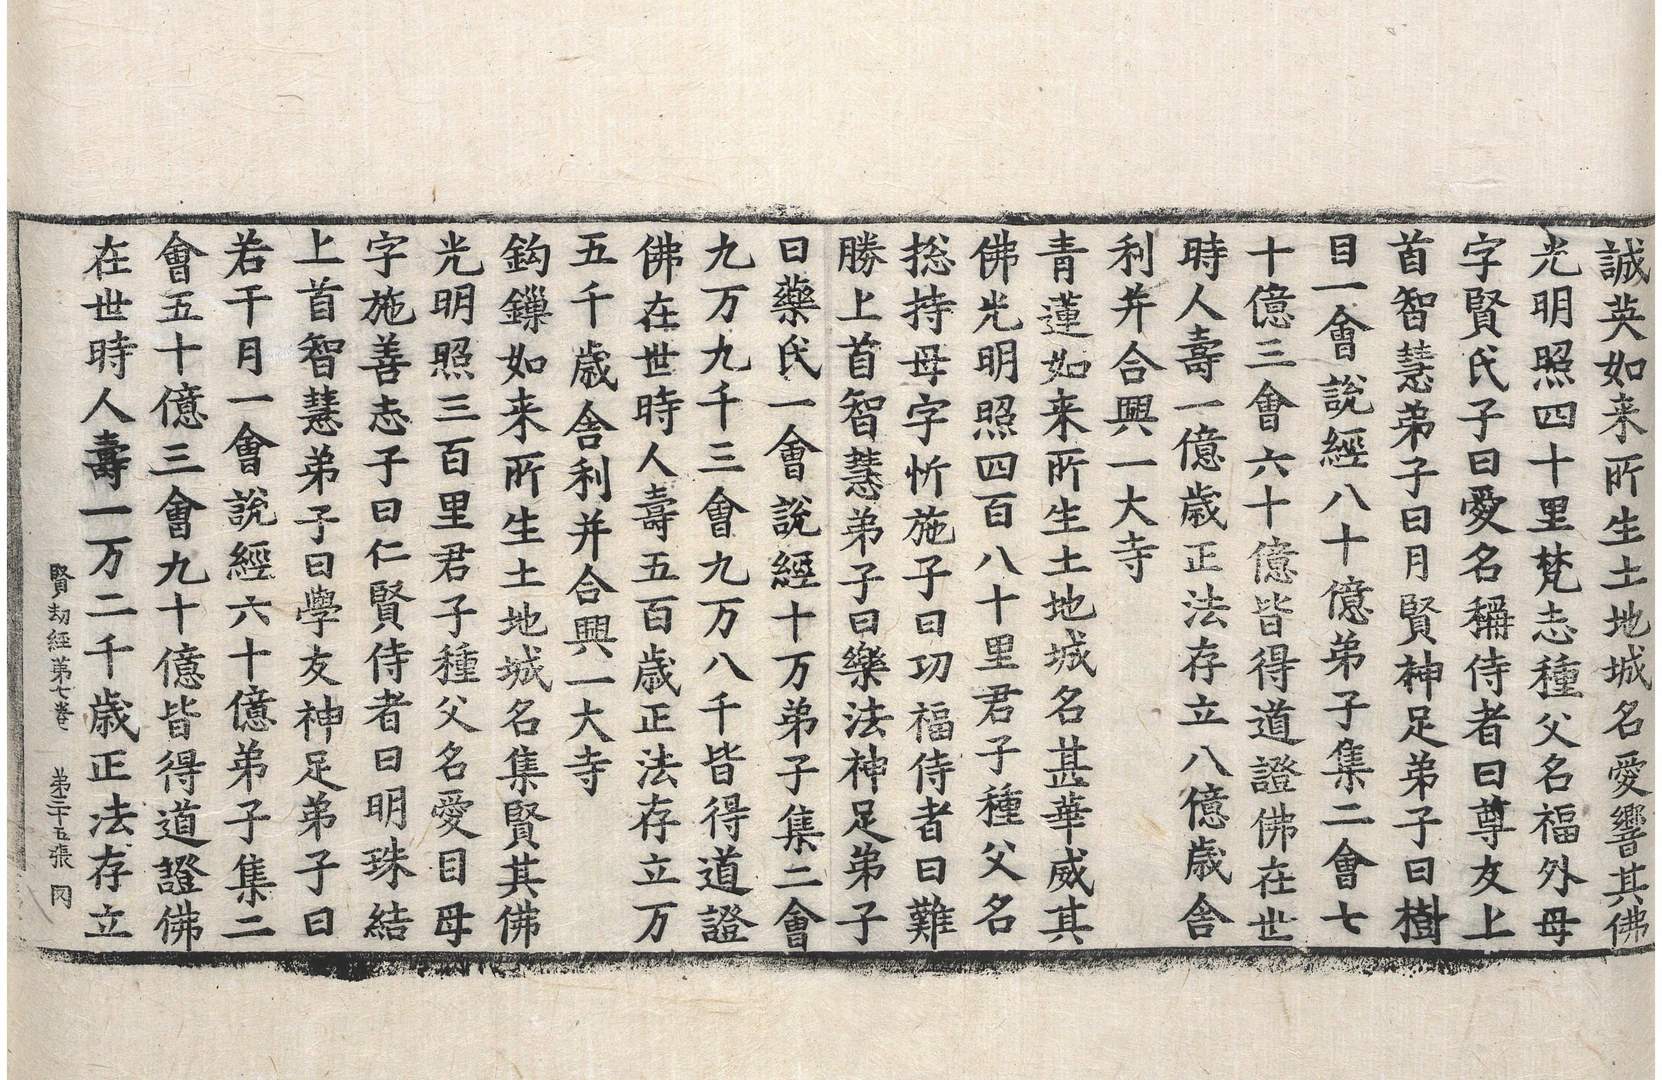 誠英如来所生土地城名愛響其佛
光明照四十里梵志種父名福外母
字賢氏子曰愛名稱侍者曰尊友上
首智慧弟子曰月賢神足弟子曰樹
目一會說經八十億弟子集二會七
十億三會六十億皆得道證佛在世
時人壽一億歲正法存立八億歲舎
利并合興一大寺
青蓮如来所生土地城名甚華威其
佛光明照四百八十里君子種父名
捴持母字忻施子曰功福侍者曰難
勝上首智慧弟子曰樂法神足弟子
曰藥氏一會說經十万弟子集二會
九万九千三會九万八千皆得道證
佛在世時人壽五百歲正法存立万
五千歲舎利并合興一大寺
鈎鏁如来所生土地城名集賢其佛
光明照三百里君子種父名愛目母
字施善志子曰仁賢侍者曰明珠結
上首智慧弟子曰學友神足弟子曰
若干月一會說經六十億弟子集二
會五十億三會九十億皆得道證佛
在世時人壽一万二千歲正法存立
賢劫經第七卷 第三十五張 冈